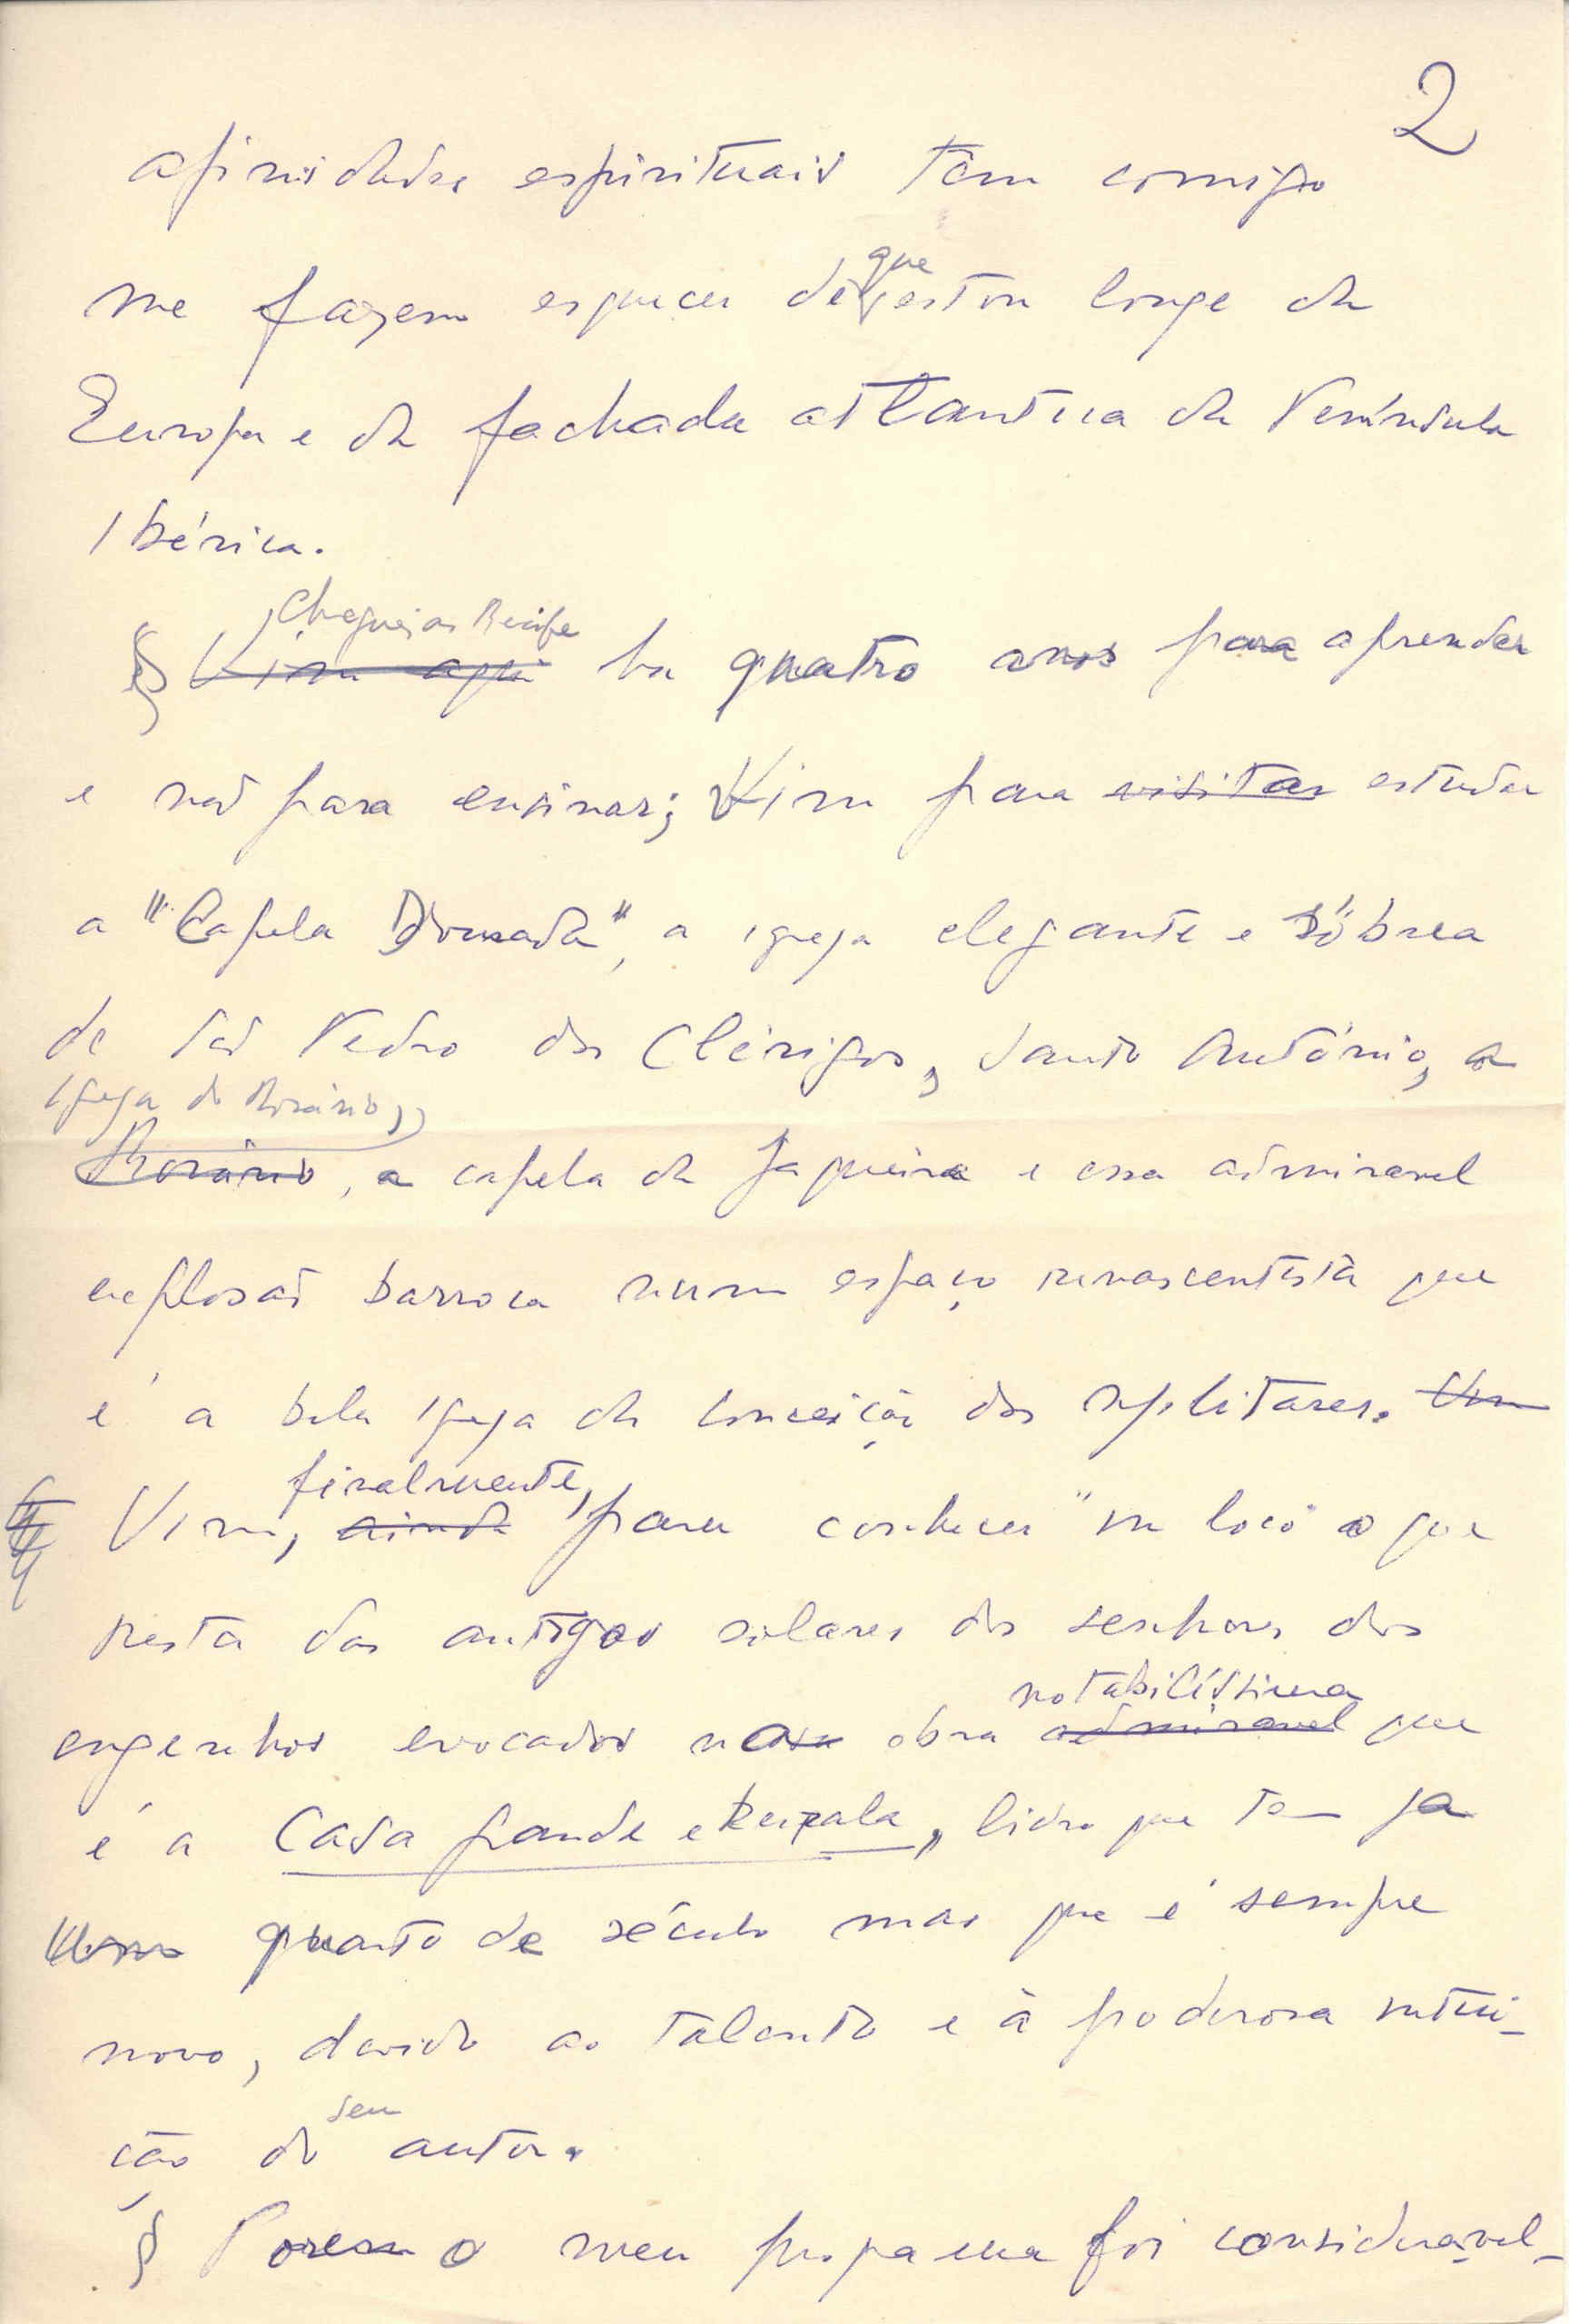 2
afinidades espirituais têm comigo
me fazem esquecer de que estou longe da
Europa e da fachada atlantica da Península
Ibérica.
Cheguei ao Recife
§ Vim aqui ha quatro anos para aprender
e não para ensinar; Vim para visitar estudar
a "Capela Dourada", a igreja elegante e sóbrea
de São Pedro dos Clérigos, Santo António, a
Igreja do Rosário,
Rosário, a capela da Jaqueira e essa admiravel
explosão barroca num espaço renascentista que
é a bela Igreja da Conceição dos Militares. Vim
finalmente,
Vim, ainda para conhecer "in loco" o que
resta dos antigos solares dos senhores dos
notabilíssima
engenhos evocados nessa obra admiravel que
é a Casa grande e Senzala, livro que tem ja
um quarto de século mas que é sempre
novo, devido ao talento e à poderosa intui-
seu
ção do autor.
§ Porem o meu programa foi consideravel-